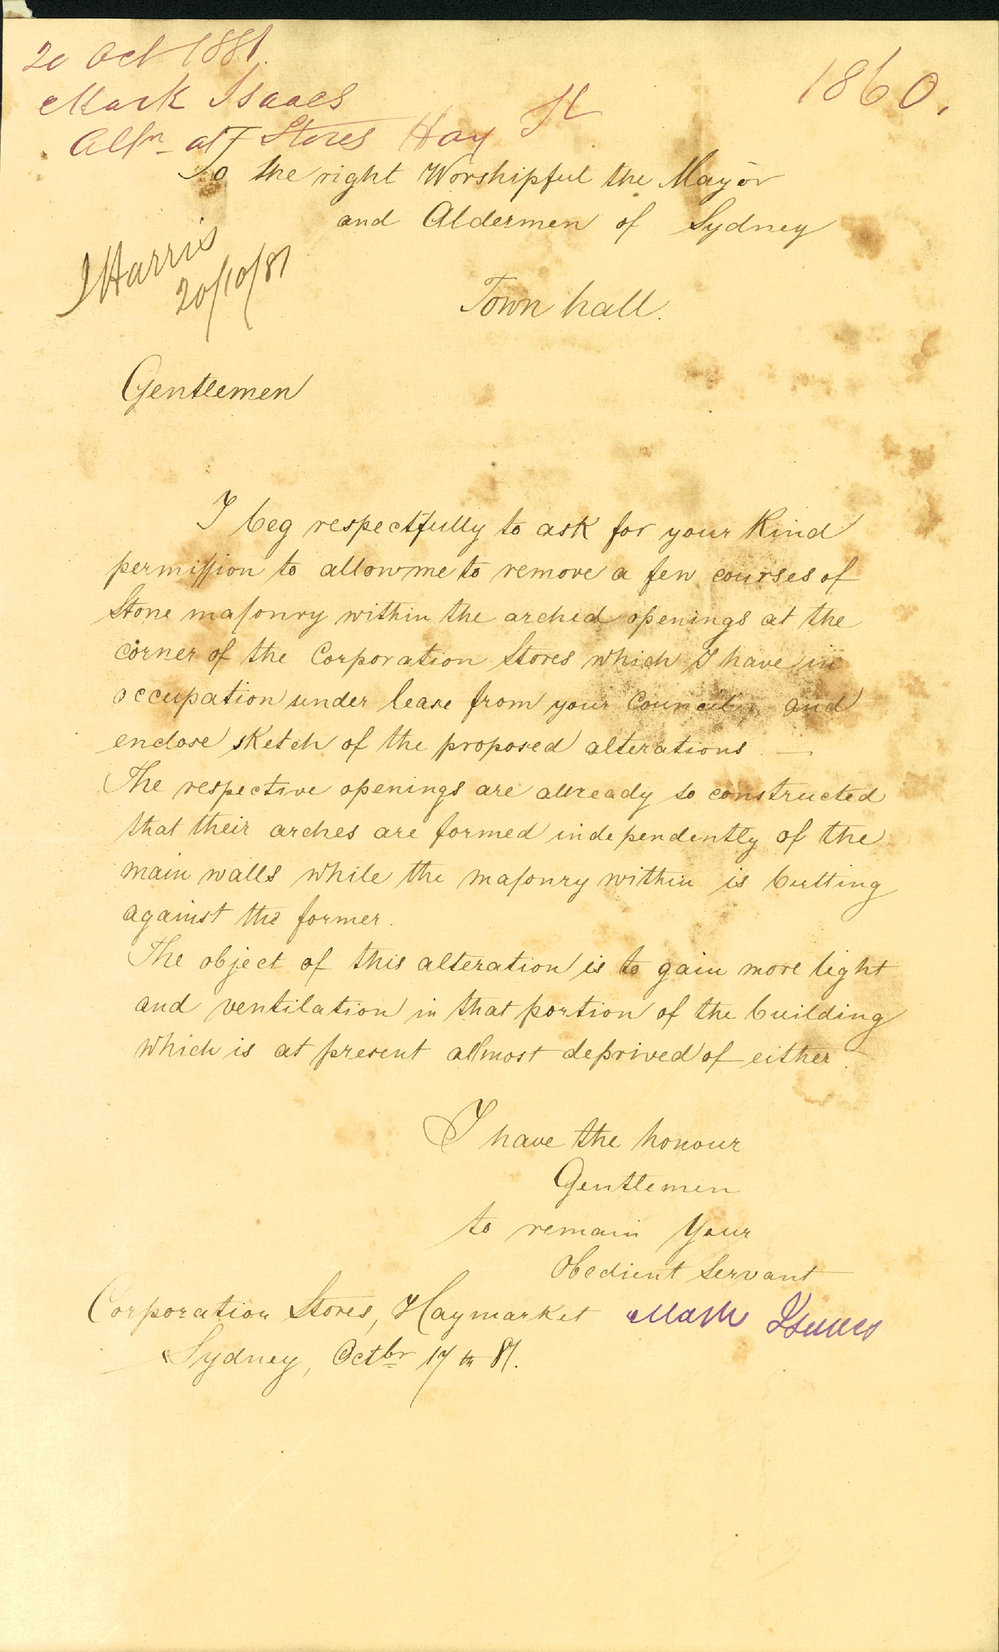 20 Oct 1881.
Mark Isaacs
1860.
Altn at Stores Hay St
To the right Worshipful the Mayor
and Aldermen of Sydney
J Harris
20/10/81
Town hall.
Gentlemen
I beg respectfully to ask for your kind
permission to allow me to remove a few courses of
Stone masonry within the arched openings at the
corner of the Corporation Stores which I have in
occupation under lease from your Council, and
enclose sketch of the proposed alterations —
The respective openings are allready so constructed
that their arches are formed independently of the
main walls while the masonry within is butting
against the former.
The object of this alteration is to gain more light
and ventilation in that portion of the building
which is at present allmost deprived of either.
I have the honour
Gentlemen
to remain Your
Obedient Servant
Corporation Stores, Haymarket Mark Isaacs
Sydney, Octbr 17th 81.